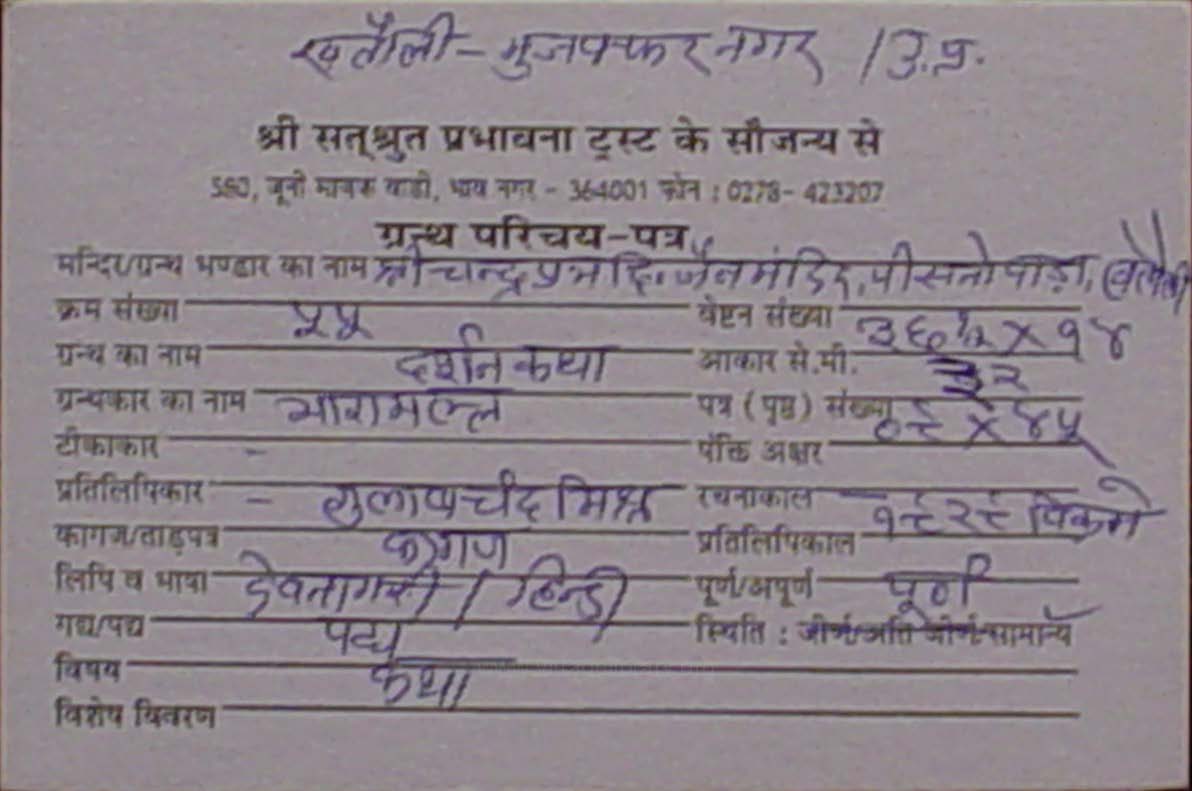 खतौली - मुजफ्फरनगर / उ.प्र.
श्री सत्श्रुत प्रभावना ट्रस्ट के सौजन्य से
580, जूनी माणेक वाडी, भाव नगर - 364001 फोन : 0278- 423207
ग्रन्थ परिचय-पत्र
मन्दिर/ग्रन्थ भण्डार का नाम श्री चन्द्रप्रभ दि. जैन मंदिर, पीसनोपाड़ा, खतौली
क्रम संख्या ५५ वेष्टन संख्या
ग्रन्थ का नाम दर्शन कथा आकार से.मी. ३६½ X १४
ग्रन्थकार का नाम भारामल्ल पत्र (पृष्ठ) संख्या ३२
टीकाकार - पंक्ति अक्षर ०९ X ४५
प्रतिलिपिकार - गुलाबचंद मिश्र रचनाकाल
कागज/ताड़पत्र कागज प्रतिलिपिकाल १९२९ विक्रमे
लिपि व भाषा देवनागरी / हिन्दी पूर्ण/अपूर्ण पूर्ण
गद्य/पद्य पद्य स्थिति : जीर्ण/अति जीर्ण/सामान्य
विषय कथा
विशेष विवरण